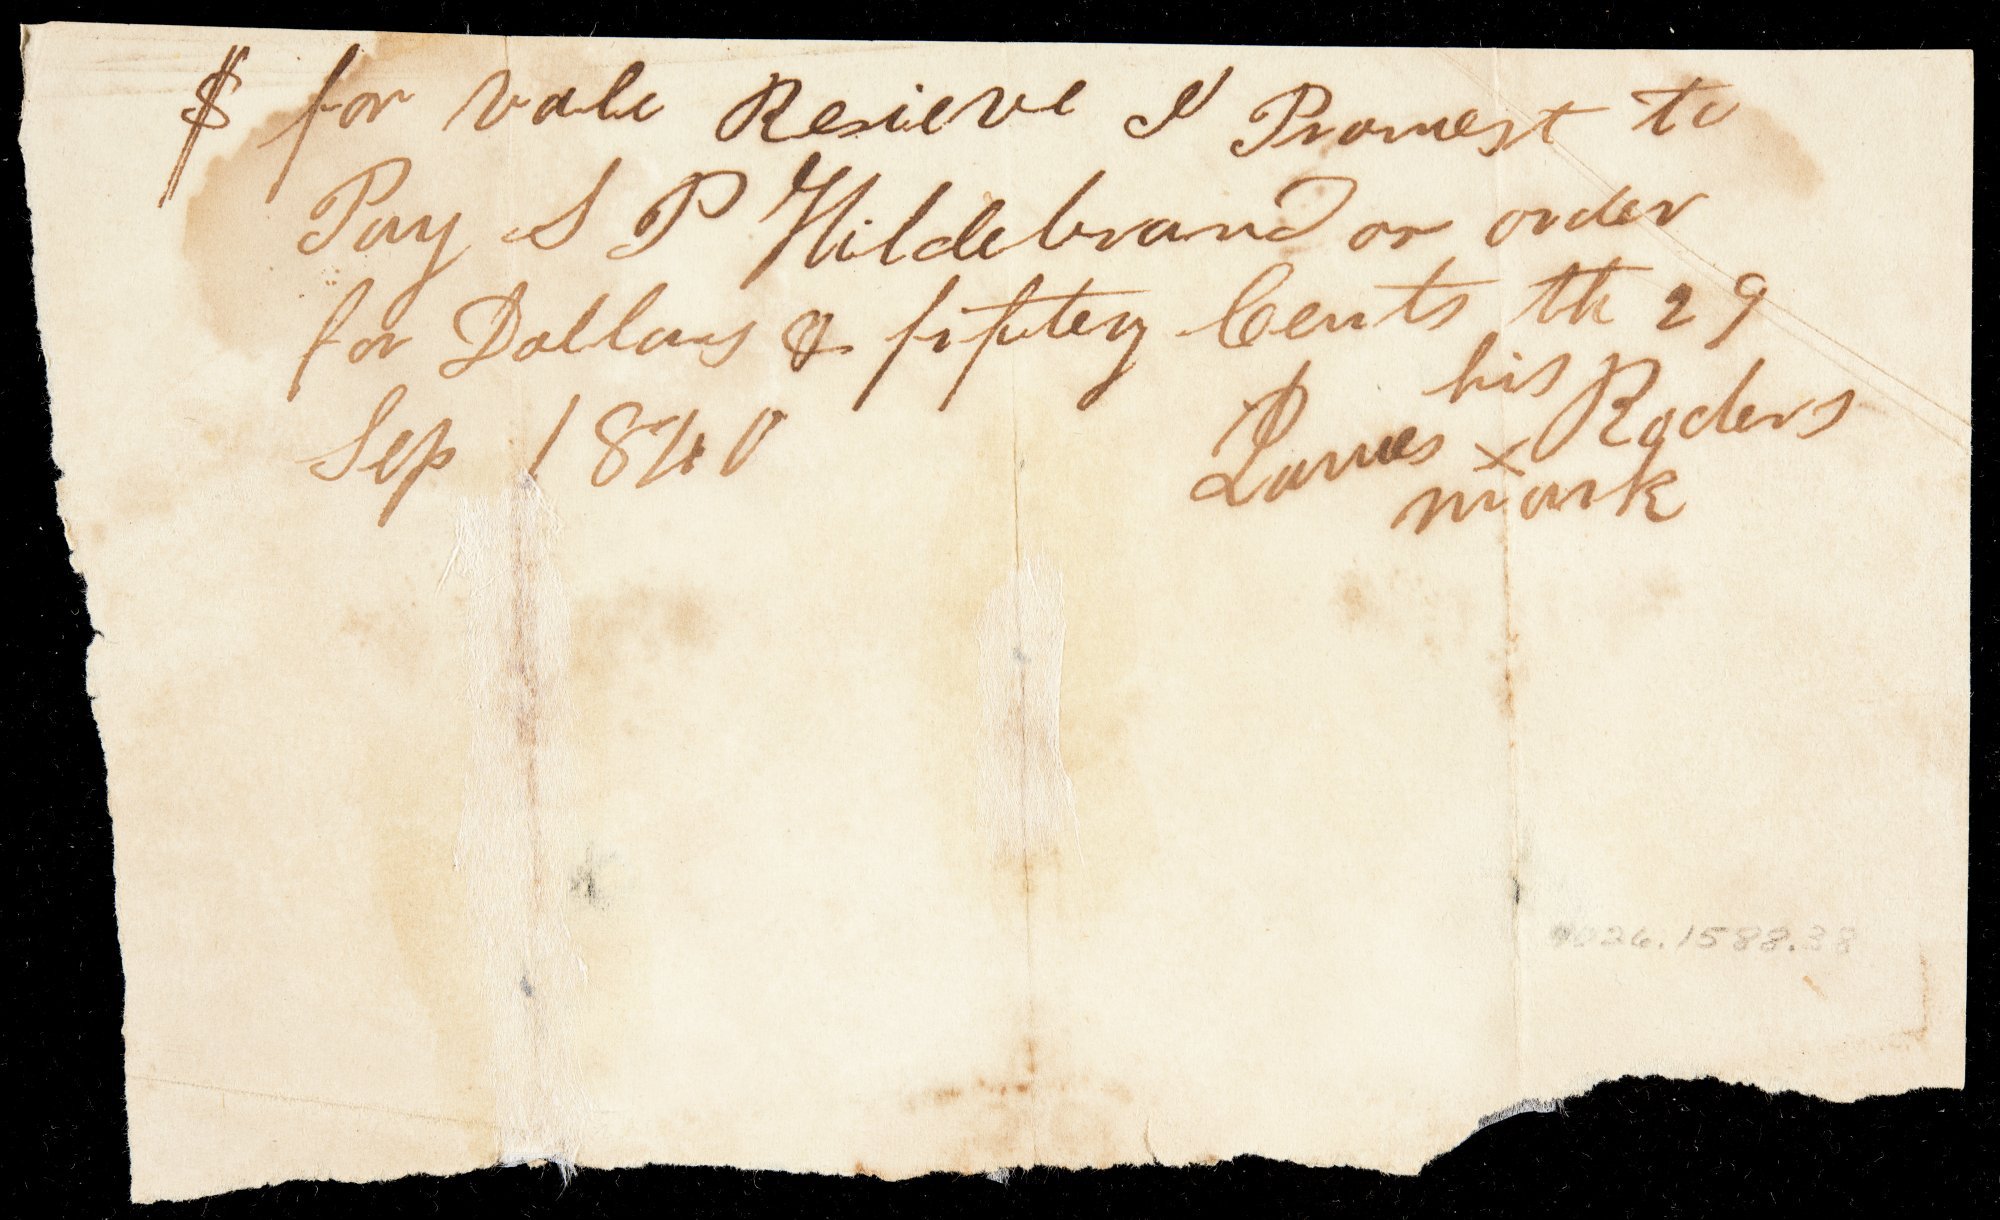 $ for vale Resieve I Promest to
Pay S P Hildebrand or order
for Dollars & fiftey Cents th 29
Sep 1840
his
James x Rogers
mark
4026.1588.38